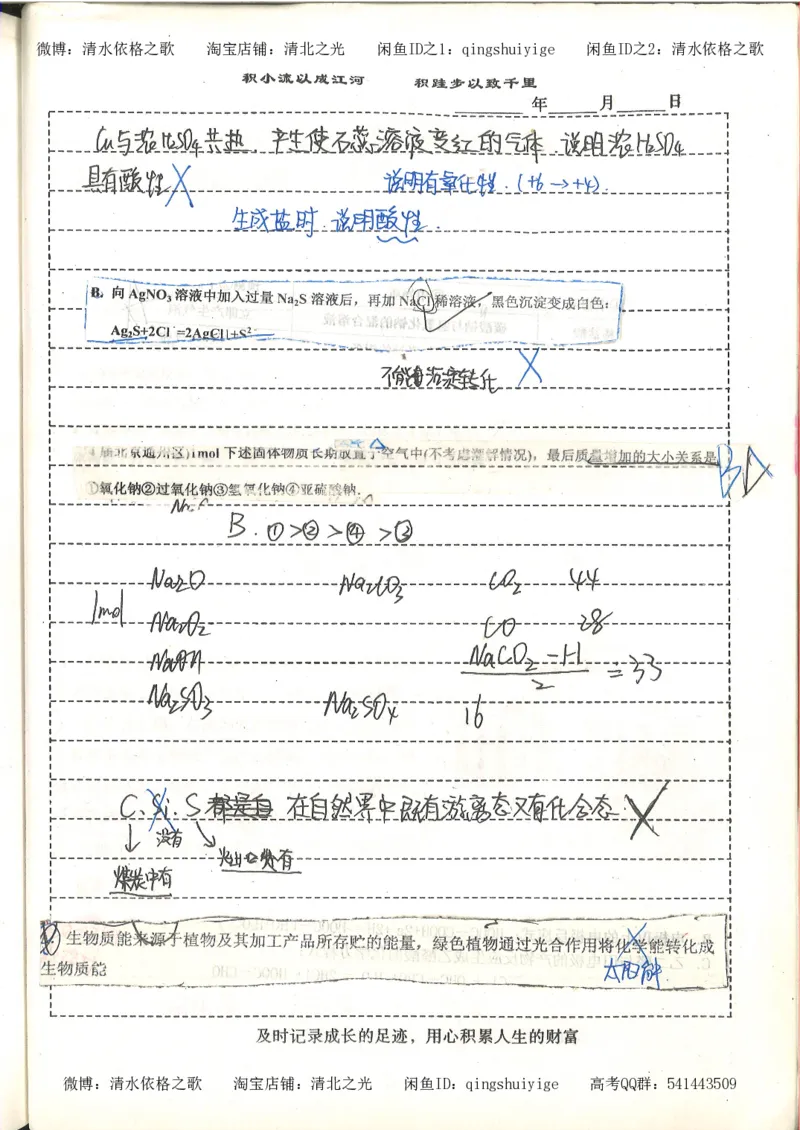 微博：清水依格之歌 淘宝店铺：清北之光 闲鱼ID之1：qingshuiyige 闲鱼ID之2：清水依格之歌
积小流以成江河 积跬步以致千里
年 月 日
Cu与浓H₂SO₄共热，产生使石蕊溶液变红的气体，说明浓H₂SO₄
具有酸性 X
说明有氧化性.(+6→+4).
生成盐时,说明酸性.
B. 向 AgNO₃ 溶液中加入过量 Na₂S 溶液后，再加 NaCl 稀溶液，黑色沉淀变成白色：
Ag₂S+2Cl⁻=2AgCl↓+S²⁻
沉淀转化 X
届北京通州区)1mol 下述固体物质长期放置于空气中(不考虑潮解情况)，最后质量增加的大小关系是
①氧化钠②过氧化钠③氢氧化钠④亚硫酸钠.
B
B. ①>②>④>③
Na₂O Na₂CO₃ CO₂ 44
1mol
Na₂O₂ CO 28
NaOH NaCO₂-H / 2 =33
Na₂SO₃ Na₂SO₄ 16
C. Si. S 都是自 在自然界中既有游离态又有化合态 X
没有 火山口处有
煤炭中有
生物质能来源于植物及其加工产品所存贮的能量，绿色植物通过光合作用将化学能转化成
太阳能
生物质能
及时记录成长的足迹，用心积累人生的财富
微博：清水依格之歌 淘宝店铺：清北之光 闲鱼ID：qingshuiyige 高考QQ群：541443509